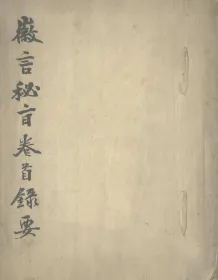 微言秘旨卷首錄要